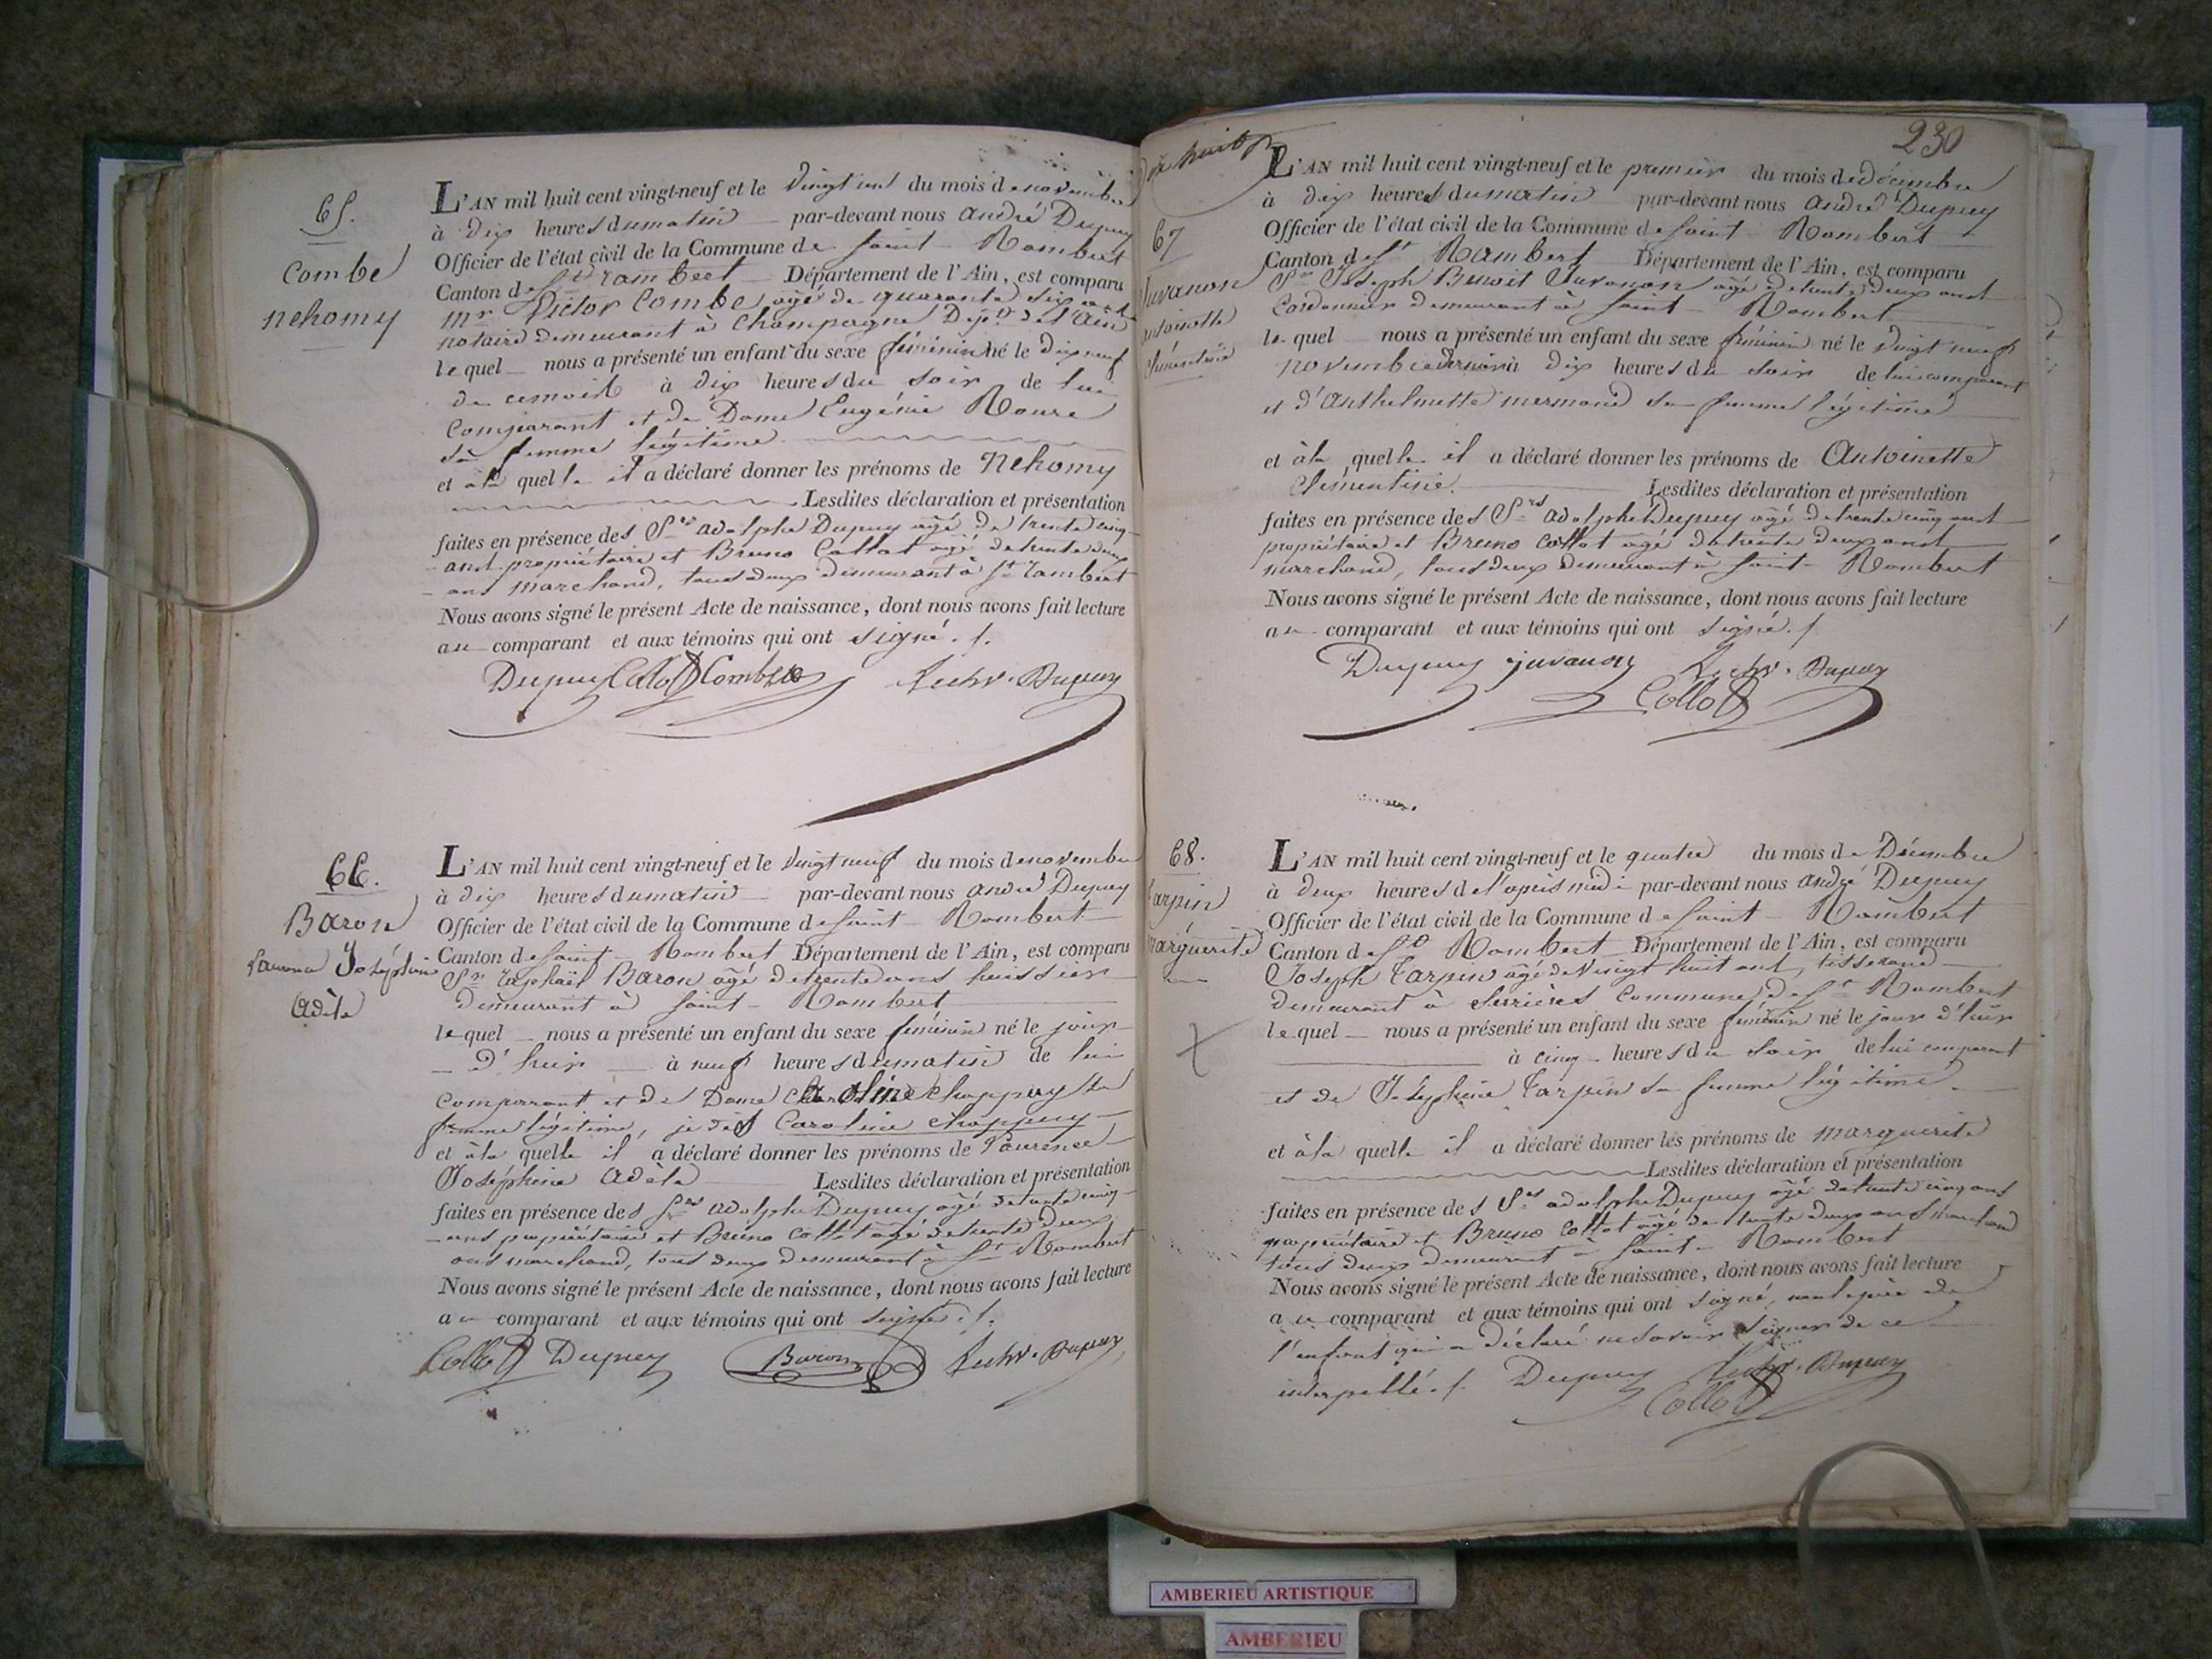 65.
Combe
Nehomy
L'AN mil huit cent vingt-neuf et le vingt un du mois de novembre
à dix heures du matin par-devant nous André Dupuy
Officier de l'état civil de la Commune de Saint-Rambert
Canton de St rambert Département de l'Ain, est comparu
Mr Victor Combe âgé de quarante six ans
notaire demeurant à Champagne Dépt de l'Ain
lequel nous a présenté un enfant du sexe féminin né le dix neuf
de ce mois à dix heures du soir de lui
Comparant et de Dame Eugénie Roure
sa femme légitime
et à la quelle il a déclaré donner les prénoms de Nehomy
Lesdites déclaration et présentation
faites en présence des Srs adolphe Dupuy âgé de trente cinq
ans propriétaire et Bruno Collot âgé de trente deux
ans marchand, tous deux demeurant à St rambert
Nous avons signé le présent Acte de naissance, dont nous avons fait lecture
au comparant et aux témoins qui ont signé.
Dupuy Collot Combe Dupuy
66.
Baron
Laurence Joséphine
Adèle
L'AN mil huit cent vingt-neuf et le vingt neuf du mois de novembre
à dix heures du matin par-devant nous André Dupuy
Officier de l'état civil de la Commune de Saint-Rambert
Canton de Saint-Rambert Département de l'Ain, est comparu
Sr raphaël Baron âgé de trente ans huissier
demeurant à Saint-Rambert
lequel nous a présenté un enfant du sexe féminin né le jour
d'huir à neuf heures du matin de lui
comparant et de Dame Caroline Chappuy sa
femme légitime, je dis Caroline Chappuy
et à la quelle il a déclaré donner les prénoms de Laurence
Joséphine Adèle Lesdites déclaration et présentation
faites en présence des Srs adolphe Dupuy âgé de trente cinq
ans propriétaire et Bruno Collot âgé de trente deux
ans marchand, tous deux demeurant à St Rambert
Nous avons signé le présent Acte de naissance, dont nous avons fait lecture
au comparant et aux témoins qui ont signé.
Collot Dupuy Baron Dupuy
230
dix huit
67
Juvanon
antoinette
Clémentine
L'AN mil huit cent vingt-neuf et le premier du mois de décembre
à dix heures du matin par-devant nous André Dupuy
Officier de l'état civil de la Commune de Saint-Rambert
Canton de St Rambert Département de l'Ain, est comparu
Sr Joseph Benoit Juvanon âgé de trente deux ans
Cordonnier demeurant à Saint-Rambert
lequel nous a présenté un enfant du sexe féminin né le vingt neuf
novembre dernier à dix heures du soir de lui comparant
et d'Anthelmette mermand sa femme légitime
et à la quelle il a déclaré donner les prénoms de Antoinette
Clémentine. Lesdites déclaration et présentation
faites en présence des Srs adolphe Dupuy âgé de trente cinq ans
propriétaire et Bruno Collot âgé de trente deux ans
marchand, tous deux demeurant à Saint-Rambert
Nous avons signé le présent Acte de naissance, dont nous avons fait lecture
au comparant et aux témoins qui ont signé.
Dupuy juvanon Dupuy
Collot
68.
Tarpin
marguerite
L'AN mil huit cent vingt-neuf et le quatre du mois de Décembre
à deux heures de l'après midi par-devant nous André Dupuy
Officier de l'état civil de la Commune de Saint-Rambert
Canton de St Rambert Département de l'Ain, est comparu
Joseph Tarpin âgé de vingt huit ans, tisserand
demeurant à Serrières Commune de St Rambert
lequel nous a présenté un enfant du sexe féminin né le jour d'hier
à cinq heures du soir de lui comparant
et de Joséphine Tarpin sa femme légitime
et à la quelle il a déclaré donner les prénoms de marguerite
Lesdites déclaration et présentation
faites en présence des Srs adolphe Dupuy âgé de trente cinq ans
propriétaire et Bruno Collot âgé de trente deux ans marchand
tous deux demeurant à Saint-Rambert
Nous avons signé le présent Acte de naissance, dont nous avons fait lecture
au comparant et aux témoins qui ont signé, non le père de
l'enfant qui a déclaré ne savoir signer de ce
interpellé. Dupuy Dupuy
Collot
AMBERIEU ARTISTIQUE
AMBERIEU